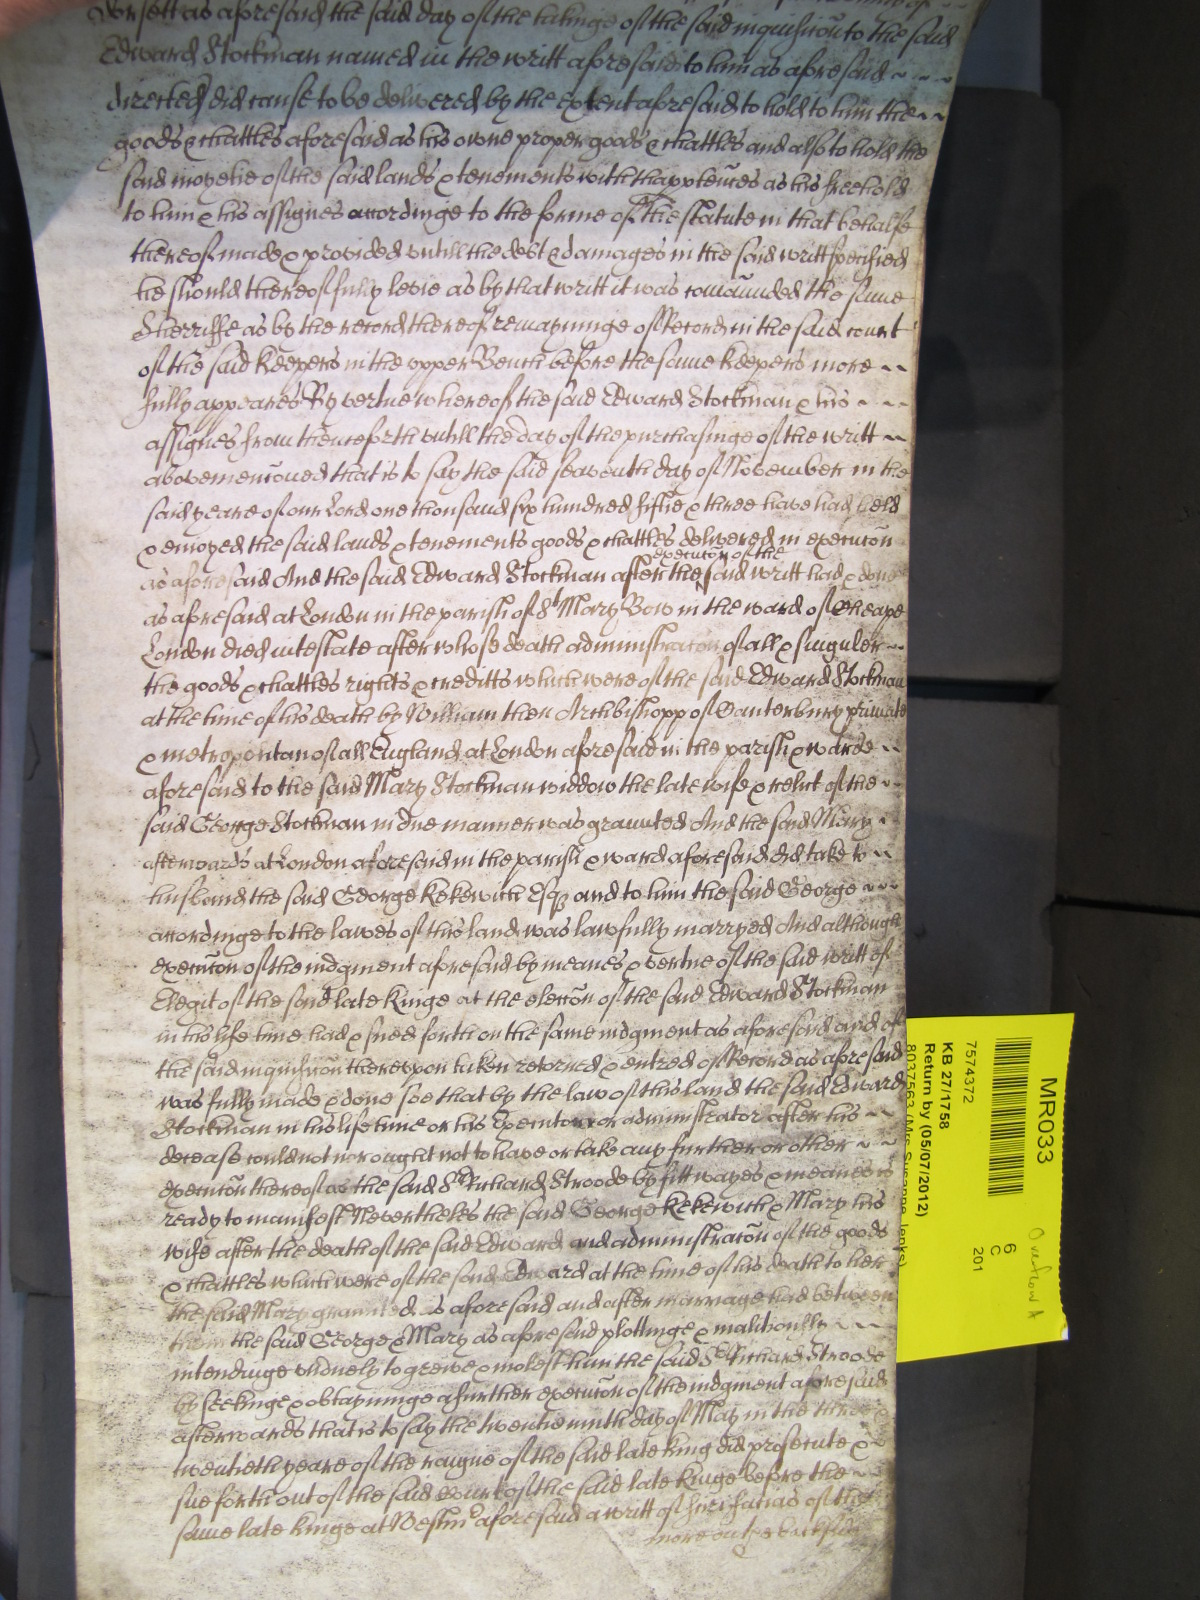 Dorsett as aforesaid the said day of the takinge of the said inquisicõn to the said
Edward Stockman named in the writt aforesaid to him as aforesaid ~ ~ ~
directed did cause to be delivered by the extent aforesaid to hold to him the ~~
goods & chattles aforesaid as his owne proper goods & chattles and also to hold the
said moyetie of the said lands & tenements with thapptenñces as his freehold
to him & his assignes accordinge to the forme of the statute in that behalfe
thereof made & provided untill the debt & damages in the said writt specified
he should thereof fully levie as by that writt it was comaunded the same
Sherriffe as by the record thereof remayninge of Record in the said court
of the said Keepers in the upper Bench before the same Keepers more ~~
fully appeares By vertue whereof the said Edward Stockman & his ~ ~ ~
assignes from thenceforth untill the day of the purchasinge of the writt ~~
abovemencõned that is to say the said seaventh day of November in the
said yeare of our Lord one thousand six hundred fiftie & three have had held
& enioyed the said lands & tenements goods & chattles delivered in execucõn
execucõn of the
as aforesaid And the said Edward Stockman after the said writt had & done
as aforesaid at London in the parish of St Mary Bow in the ward of Cheape
London died intestate after whose death administracõn of all & singuler ~~
the goods & chattles rights & creditts which were of the said Edward Stockman
at the time of his death by William then Archbishopp of Canterbury primate
& metropolitan of all England at London aforesaid in the parish & warde ~~
aforesaid to the said Mary Stockman widdow the late wife & relict of the ~
said George Stockman in due manner was graunted And the said Mary ~
afterwards at London aforesaid in the parish & ward aforesaid did take to ~~
husband the said George Kekewich Esqr and to him the said George ~~~
accordinge to the lawes of this land was lawfully marryed And although
execucõn of the iudgment aforesaid by meanes & vertue of the said writt of
Elegit of the said late Kinge at the eleccõn of the said Edward Stockman
in his life time had & sued forth on the same iudgment as aforesaid and of
the said inquisicõn thereupon taken retorned & entred of Record as aforesaid
was fully made & done soe that by the law of this land the said Edward
Stockman in his life time or his Executor or administrator after his ~~
decease could not nor ought not to have or take any further or other ~~
execucõn thereof as the said Sr Richard Stroode by fitt wayes & meanes is
ready to manifest Nevertheles the said George Kekewich & Mary his
wife after the death of the said Edward and administracõn of the goods
& chattles which were of the said Edward at the time of his death to her
the said Mary graunted as aforesaid and after marriage had betweene
them the said George & Mary as aforesaid plottinge & malitiously ~~~
intendinge uniustly to greive & molest him the said Sr Richard Stroode
by seekinge & obtayninge a further execucõn of the iudgment aforesaid
afterwards that is to say the twentie nynth day of May in the three &
twentieth yeare of the raigne of the said late king did prosecute & ~
sue forth out of the said Court of the said late kinge before the ~~
same late kinge at Westm̃ aforesaid a writt of scire facias of the
more on the backside
MR033
7574372
KB 27/1758
Return by (05/07/2012)
6
C
201
Overflow A